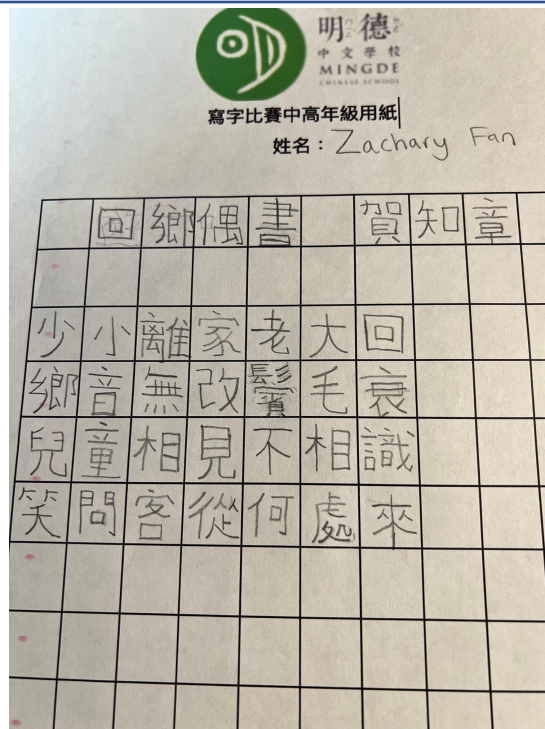 明德
中文學校
MINGDE
CHINESE SCHOOL
寫字比賽中高年級用紙
姓名：Zachary Fan
回鄉偶書 賀知章
少小離家老大回
鄉音無改鬢毛衰
兒童相見不相識
笑問客從何處來